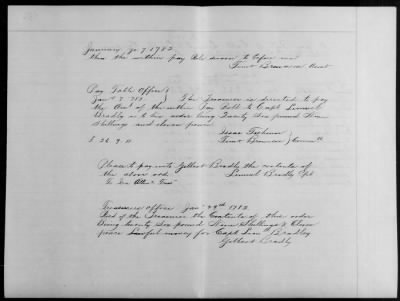 January ye 7 1782
then the within pay Role sworn to before me
Timt Brownson Assit
Pay Table Office
Jany 7 782 } The Treasurer is directed to pay
the Amt of the within Pay Roll to Capt Lemuel
Bradly or to his order being Twenty Six pound Nine
Shillings and eleven pence
Isaac Tichenor
£ 26. 9. 11 Timt Brownson } Committe
Please to pay unto Gilbert Bradly the contents of
the above order Lemuel Bradly Capt
To Ira Allen Treasr
Treasurers Office Jany 29th 1782
Recd of the Treasurer the Contents of this order
Being twenty Six pound Nine Shillings & Eleven
pence lawful money for Capt Lemll Bradley
Gilbert Bradly